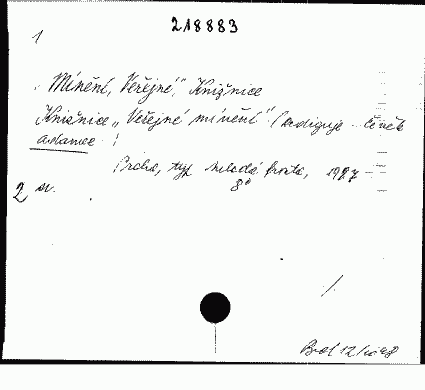 218883
1
Mínění, Veřejné", Knižnice
Knižnice „Veřejné mínění". (Rediguje Čeněk
Adamec)
Praha, typ. Mladá fronta, 1947
8°
2 sv.